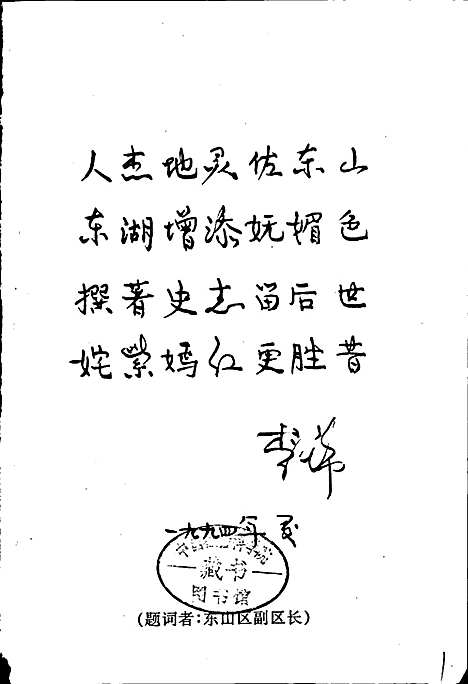 人杰地灵佐东山
东湖增添妩媚色
撰著史志留后世
姹紫嫣红更胜昔
李希
一九九四年夏
藏书
图书馆
(题词者:东山区副区长)
1